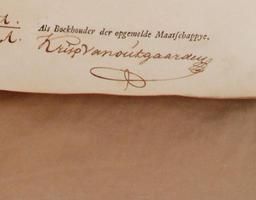 Als Boekhouder der opgemelde Maatſchappye.
Krisp Vanoutgaarden